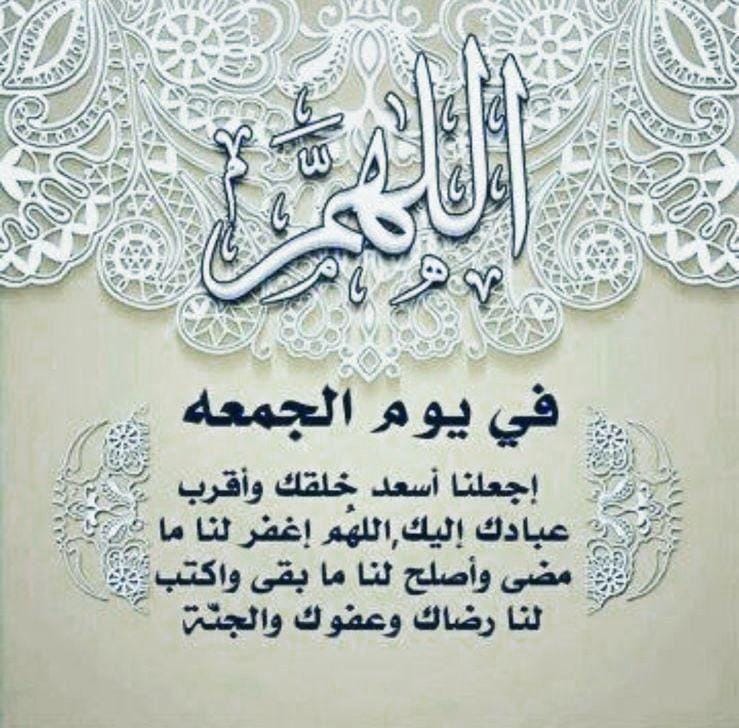 اللهم
في يوم الجمعه
إجعلنا أسعد خلقك وأقرب
عبادك إليك,اللهُم إغفر لنا ما
مضى وأصلح لنا ما بقى واكتب
لنا رضاك وعفوك والجنّة